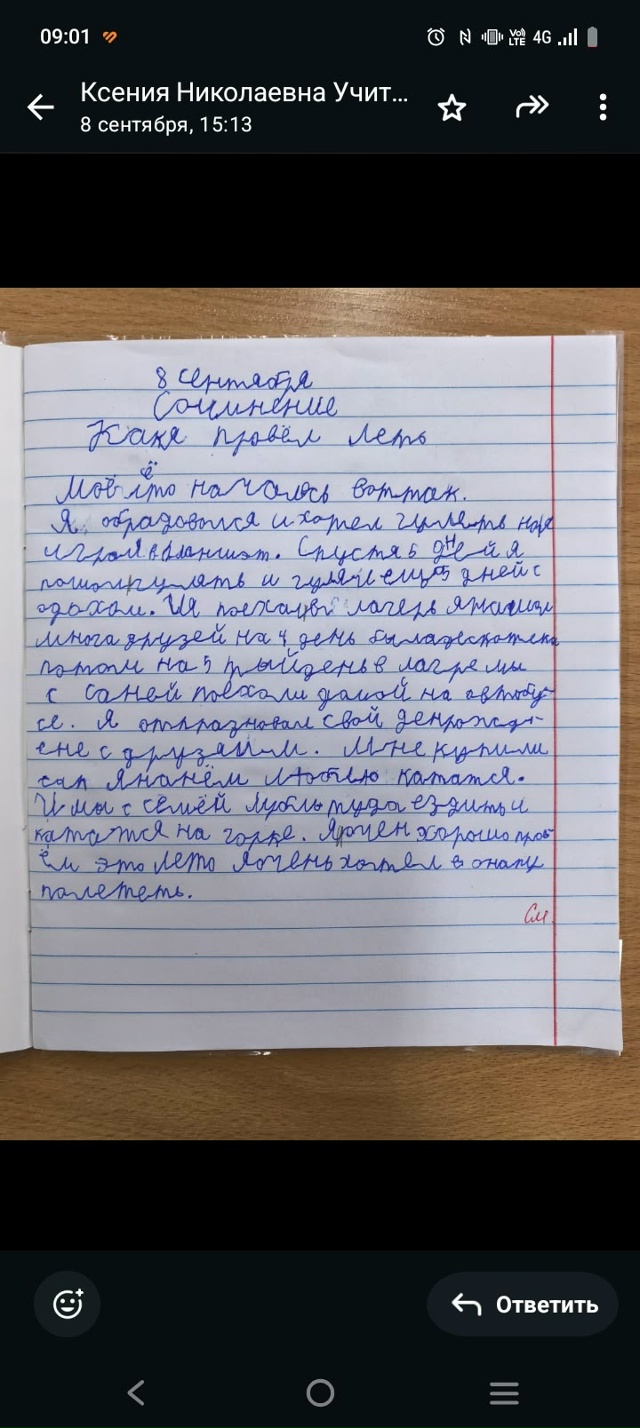 09:01
Vo)) LTE 4G
Ксения Николаевна Учит...
8 сентября, 15:13
8 сентября
Сочинение
Какя провёл леть
Моё лёто началось воттак.
Я обрадовался и хотел гулять но я
играл в планшэт. Спустя 5 дней я
пошол гулять и гуляли ещо 5 дней с
. И я поехал в лагерь я нашол
многа друзей на 4 день была дескотека
потом на 5 тыйдень в лагре мы
с Саней поехали дамой на автобу-
се. Я отпразновал свой денрожд-
ене с друзями. Мне купили
сап я нанём люблю кататся.
И мы с семёй туда ездить и
кататся на горке. Я очен хорошо пров-
ём это лето Я очень хотел в анапу
палететь.
См.
Ответить